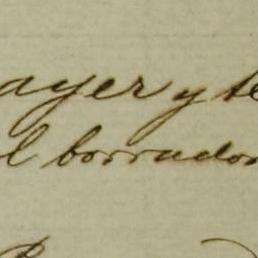 ayer y te
el borrador